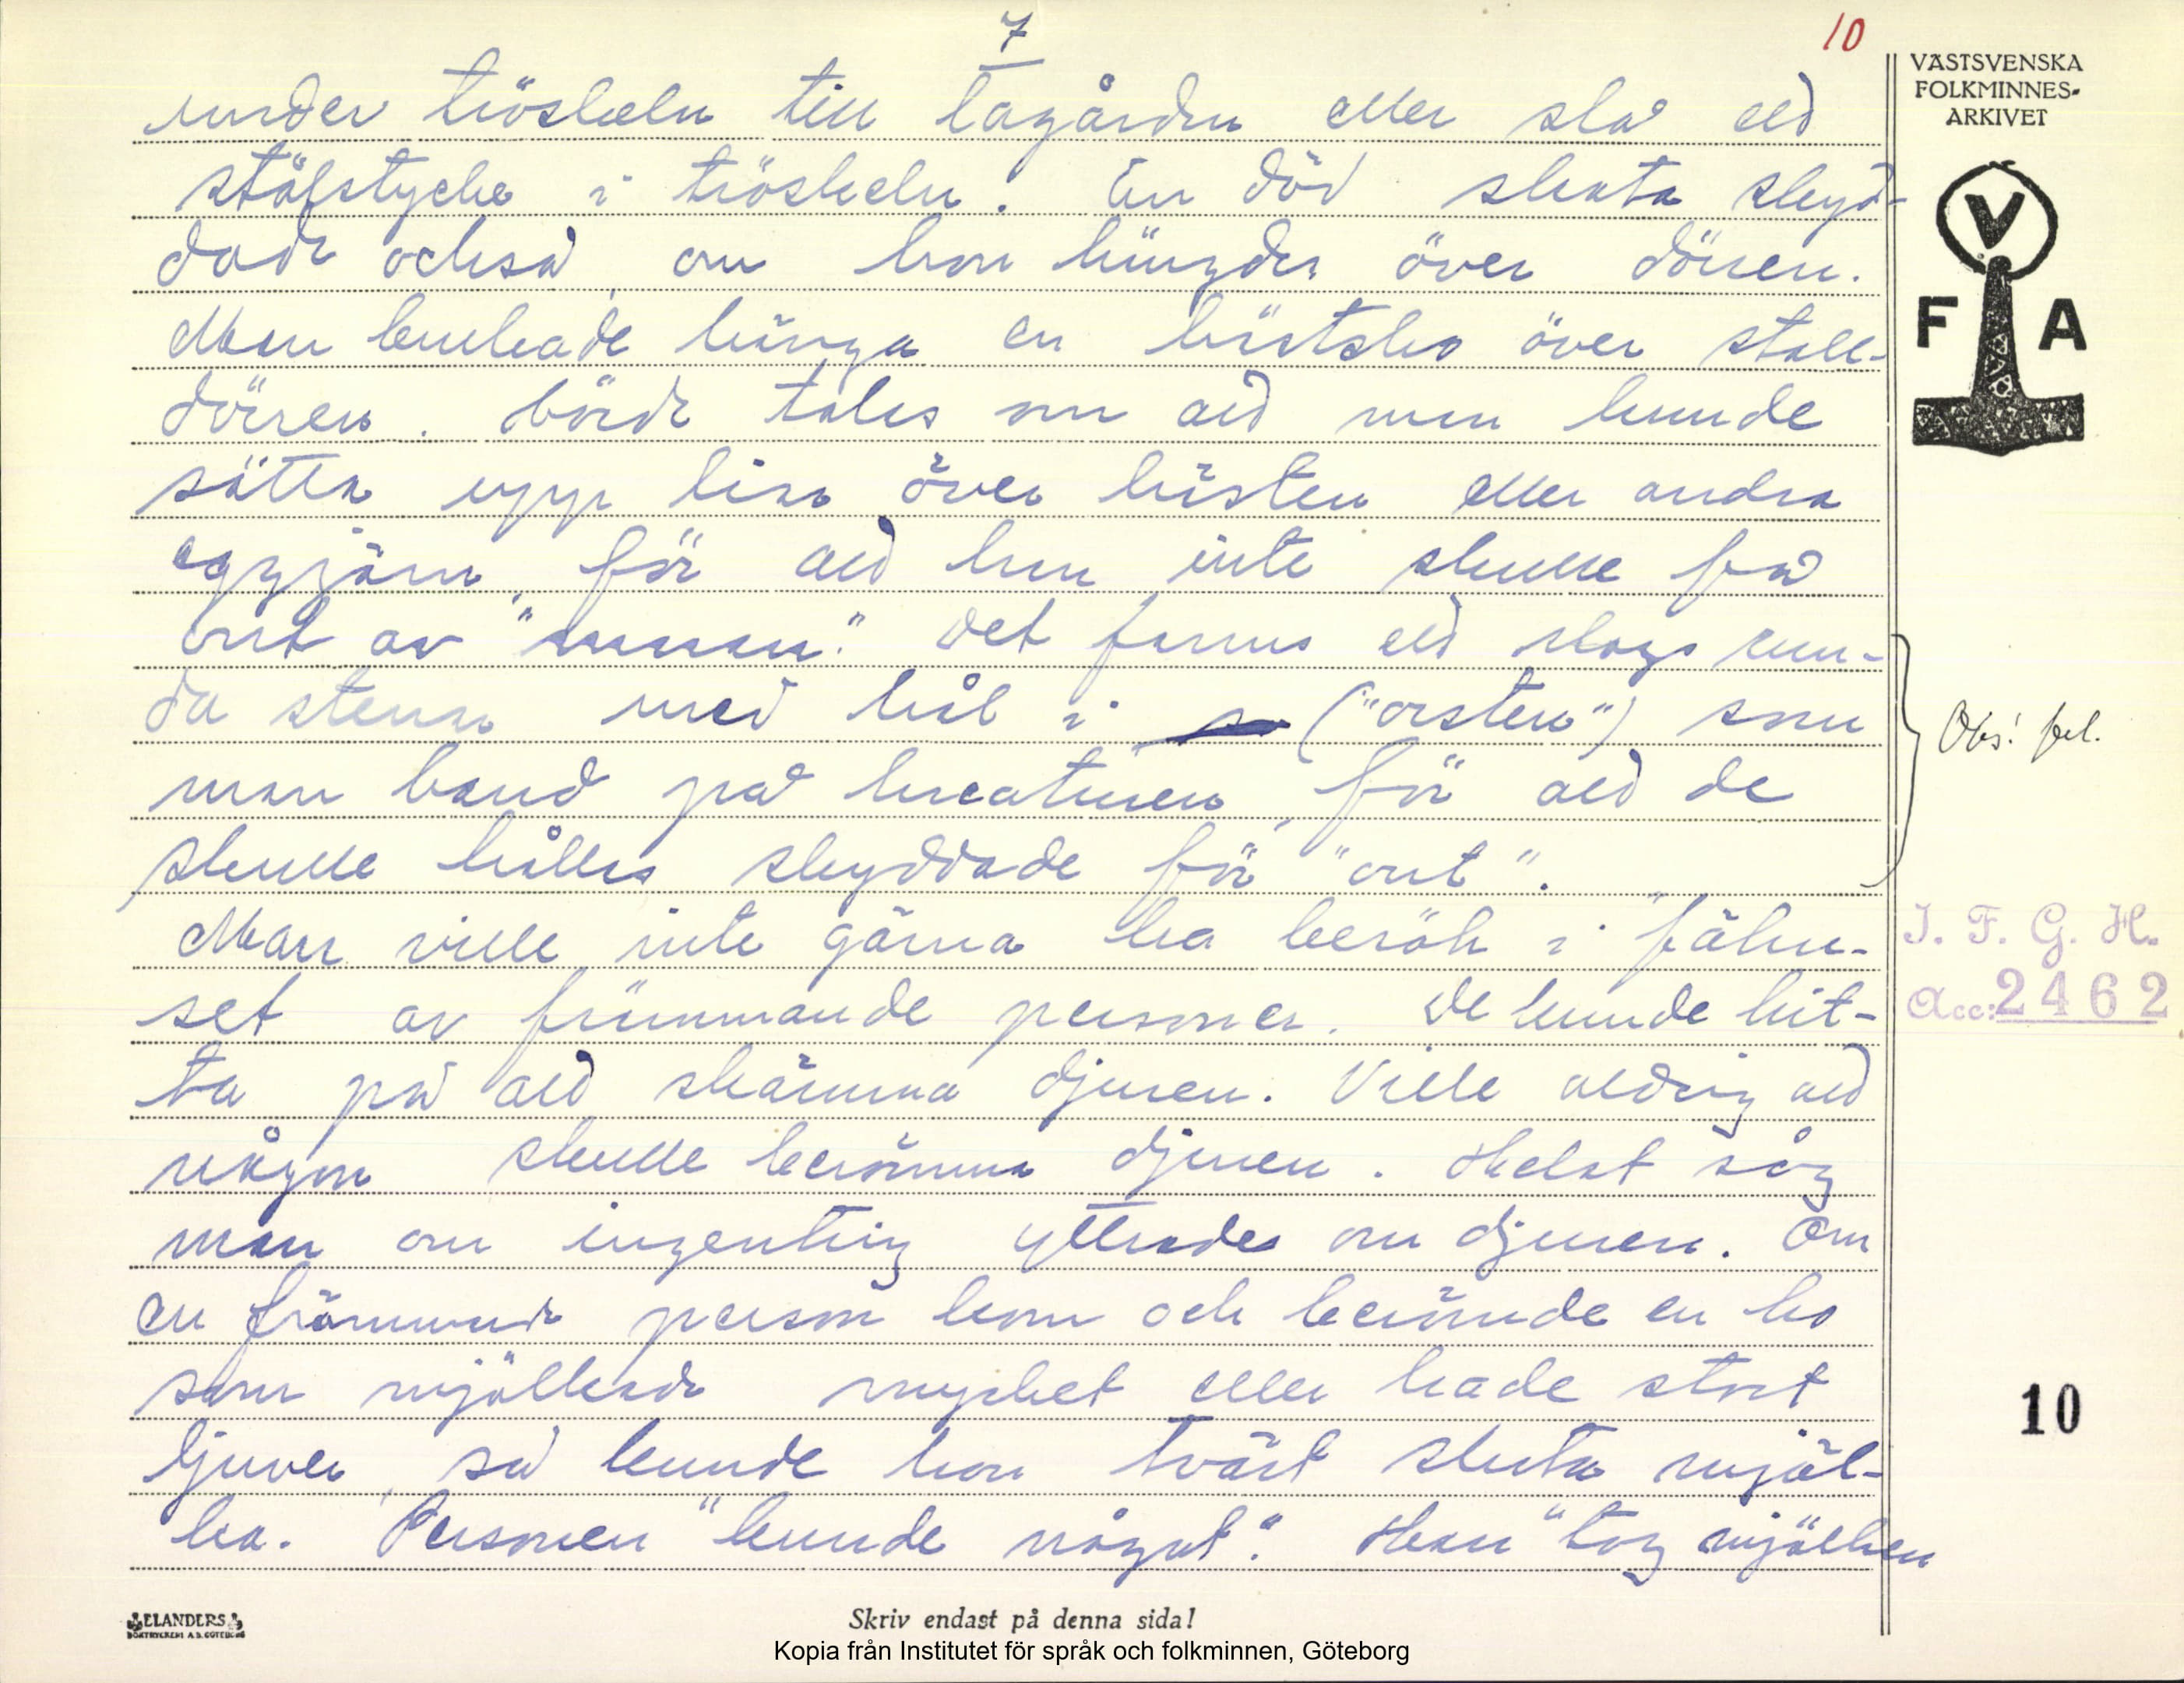 7
10
under tröskeln till lagården eller slå ett
stålstycke i tröskeln. En död skata skyd-
dade också, om hon hängdes över dörren.
Man brukade hänga en hästsko över stall-
dörren. Hörde talas om att man kunde
sätta upp liar över hästen eller andra
eggjärn, för att han inte skulle få
ont av "maran". Det fanns ett slags run-
da stenar med hål i ("orsten") som
man band på kreaturen, för att de
skulle hållas skyddade för "ont".
Man ville inte gärna ha besök i fähu-
set av främmande personer. De kunde hit-
ta på att skämma djuren. Ville aldrig att
någon skulle berömma djuren. Helst såg
man om ingenting yttrades om djuren. Om
en främmande person kom och berömde en ko
som mjölkade mycket eller hade stort
juver, så kunde hon tvärt sluta mjöl-
ka. Personen "kunde något". Han "tog mjölken
VÄSTSVENSKA
FOLKMINNES-
ARKIVET
V
F A
Obs!
I. F. G. H.
Acc: 2462
10
ELANDERS
BOKTRYCKERI A.B. GÖTEBORG
Skriv endast på denna sida!
Kopia från Institutet för språk och folkminnen, Göteborg